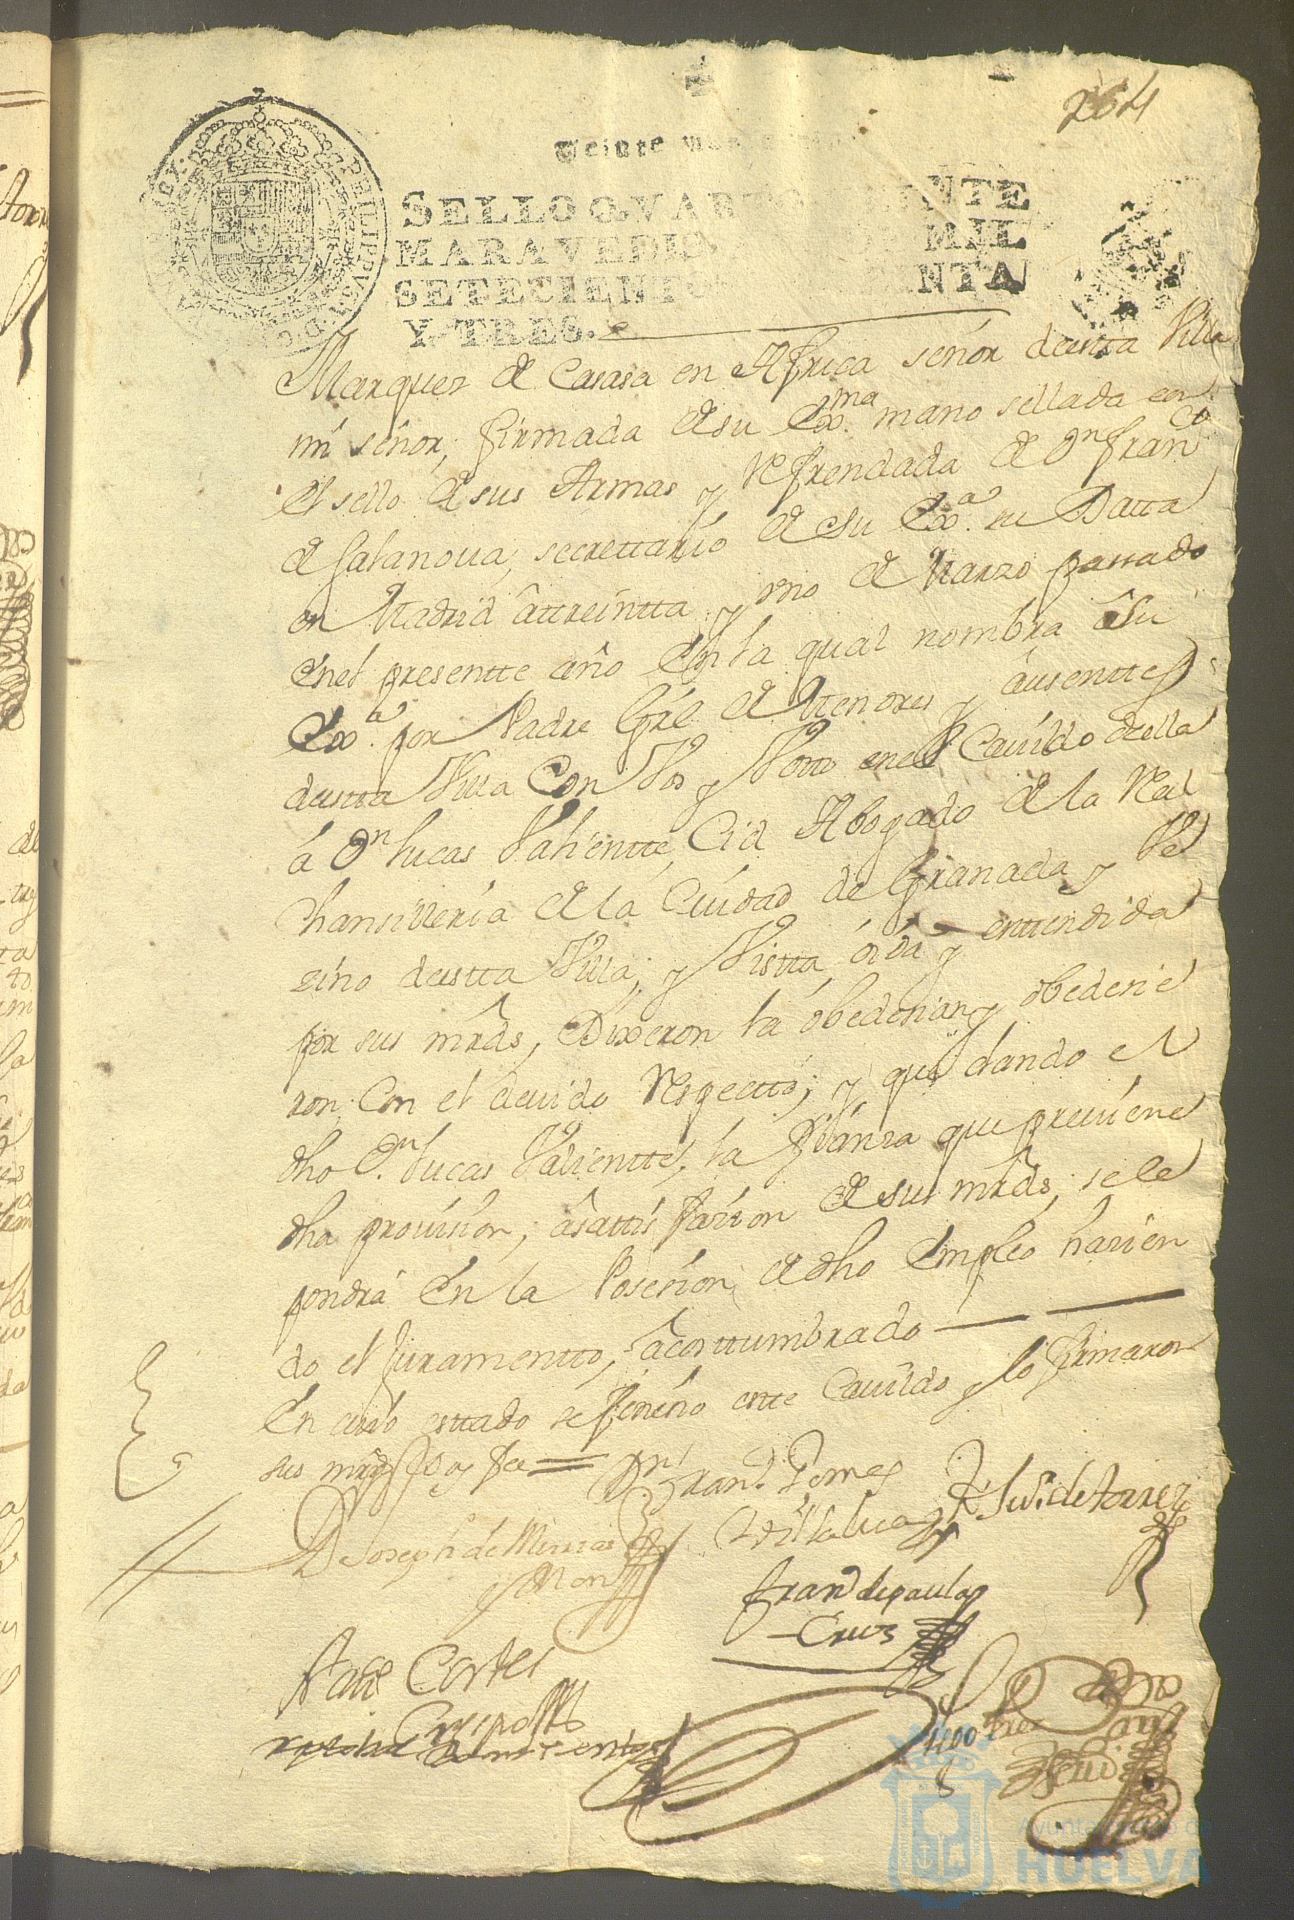 264
Veinte
SELLO QVARTO VEINTE
MARAVEDIS MIL
SETECIENTOS ENTA
Y TRES.
Marques de Casasa en Africa señor destta Villa
mi señor, firmada de su Exx.ma mano sellada con
el sello de sus Armas y Refrendada de Dn Franco
de Casanoua, secrettario de su Exx.a su Datta
en Madrid â ttreintta y vno de Marzo passado
enel presentte año en la qual nombra â su
Exx.a por Padre Grl de Menores y ausenttes
destta Villa Con Vos y Votto enel Cauildo della
â Dn Lucas Valientte Cid Abogado de la Real
Chansilleria de la Ciudad de Granada y Ve
zino destta Villa; y Vistta oida y enttendida
por sus mrds, Dixeron la obedecian y obedecie
ron con el deuido Respectto; y que dando el
dho Dn Lucas Valientte, la fianza que preuiene
dha prouision, â sattisfazion de sus mrds, se le
pondrá en la Posesion de dho empleo hazien
do el Juramentto, acosttumbrado
En cuio esttado se feneció estte Cauildo y lo firmaron
sus mrds Doy fee =
Dn Fran.co Gomez
Villaluca
de torrez
D Joseph de
y Mon
Fran.co de paula
Cruz
Cortes
Crespo